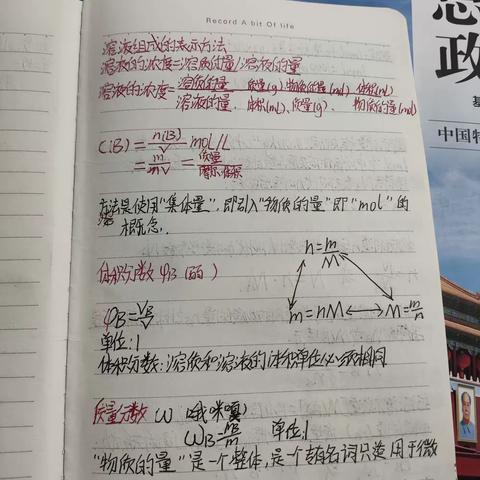 Record A bit Of life
溶液组成的表示方法
溶液的浓度=溶质的量/溶液的量
溶液的浓度=溶质的量/溶液的量 质量(g)、物质的量(mol)、体积(ml)
体积(ml)、质量(g)、物质的量(mol)
C(B)=n(B)/V mol/L
=m/MV=质量/
方法是使用"集体量",即引入"物质的量"即"mol"的
概念.
n=m/M
体积分数 φB
m=nM ⟷ M=m/n
φB=VB/V
单位:1
体积分数:溶质和溶液的体积单位必须相同
质量分数 ω 哦咪嘎)
ωB=mB/m 单位:1
"物质的量"是一个整体,是一个专有名词只适用于微
政
中国特